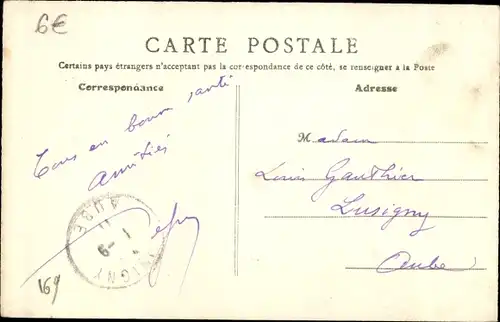 6€
CARTE POSTALE
Certains pays étrangers n'acceptant pas la correspondance de ce côté, se renseigner à la Poste
Correspondance
Adresse
Tous en bonne santé
Amitiés
M adam
Louis Gauthier
Lusigny
Aube
AUBE
169